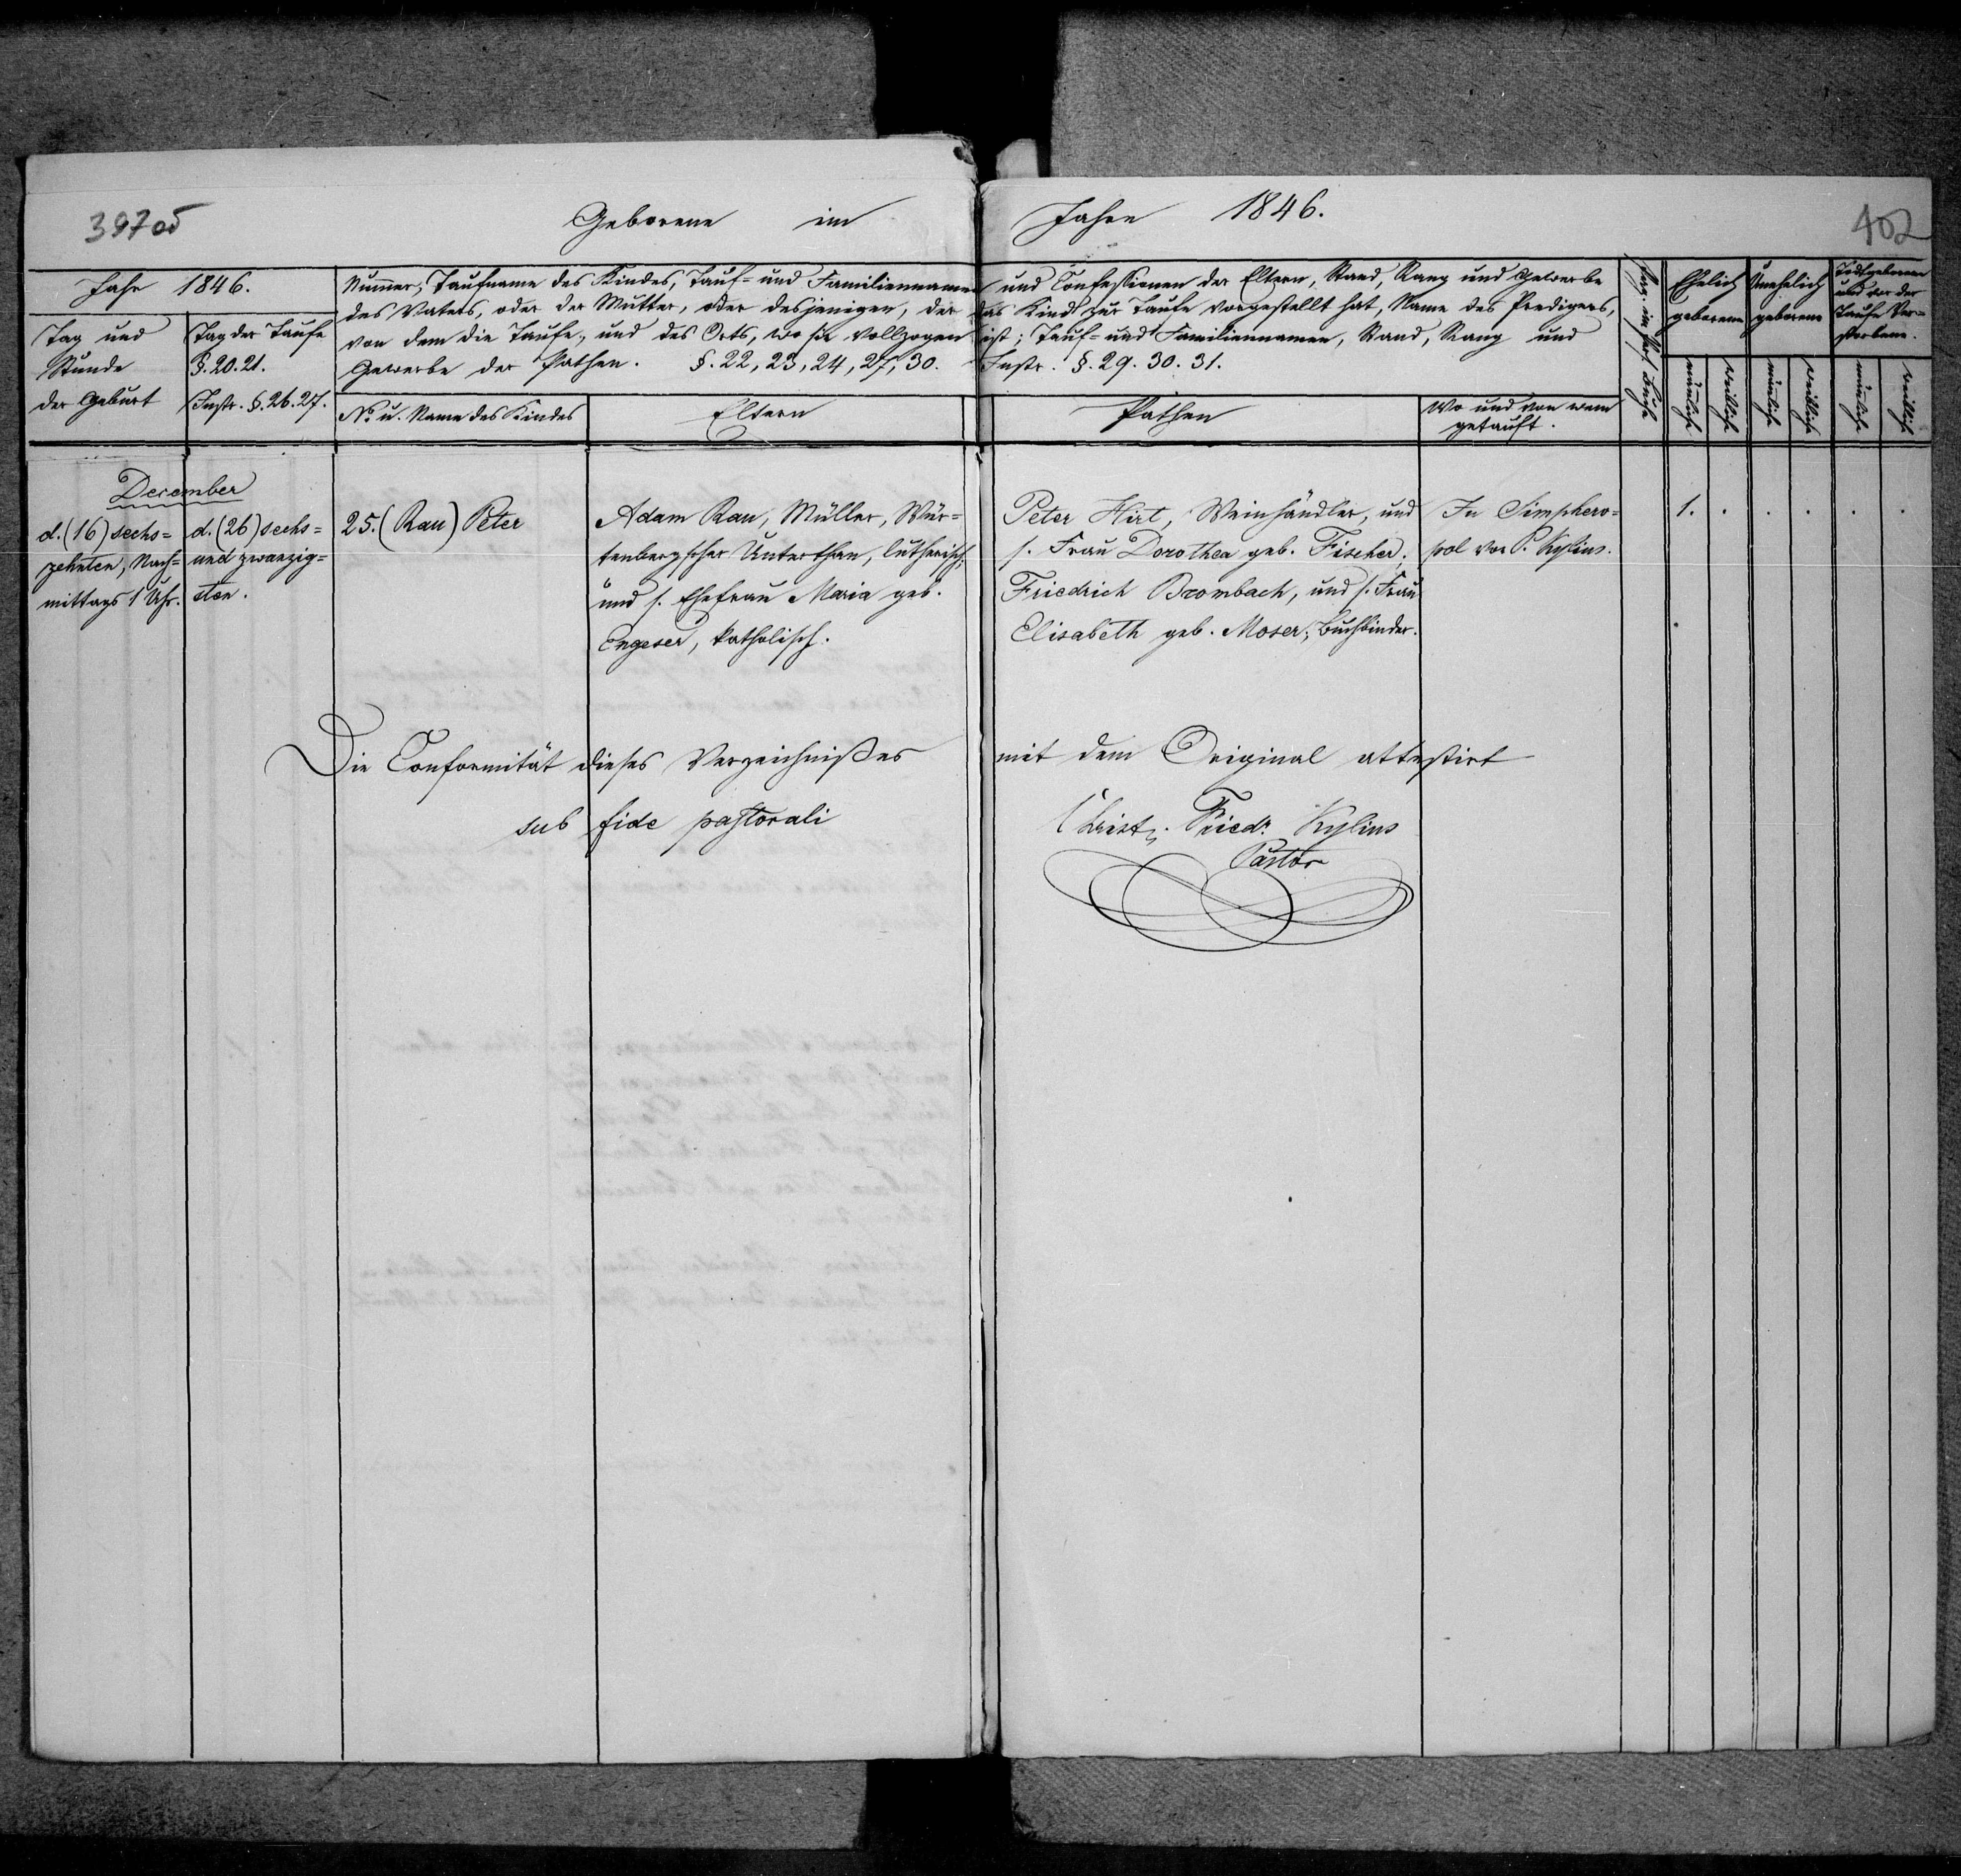 397об
Geborene im Jahre 1846.
402
Jahr 1846.
Tag und
Stunde
der Geburt
Tag der Taufe
§. 20. 21.
Instr. §. 26. 27.
Numer, Taufname des Kindes, Tauf- und Familiennamen und Confessionen der Eltern, Stand, Rang und Gewerbe
des Vaters, oder der Mutter, oder desjenigen, der das Kind zur Taufe vorgestellt hat, Name des Predigers,
von dem die Taufe, und des Orts, wo sie vollzogen ist; Tauf- und Familiennamen, Stand, Rang und
Gewerbe der Pathen. §. 22, 23, 24, 27, 30. Instr. §. 29. 30. 31.
No u. Name des Kindes
Eltern
Pathen
Wo und von wem
getauft.
Ehelich
geborene
Unehelich
geborene
Todtgeborene
und vor der
Taufe Ver-
storbene.
männlich
weiblich
männlich
weiblich
männlich
weiblich
December
d. (16) sechs=
zehnten, Nach=
mittags 1 Uhr.
d. (26) sechs=
und zwanzig=
sten.
25. (Rau) Peter
Adam Rau, Müller, Wür=
tenbergscher Unterthan, lutherisch;
und s. Ehefrau Maria geb.
Engeser, katholisch.
Peter Hirt, Weinhändler, und
s. Frau Dorothea geb. Fischer;
Friedrich Brombach, und s. Frau
Elisabeth geb. Moser; Buchbinder.
In Simphero=
pol von P. Kylius.
1. . . . . .
Die Conformität dieses Verzeichnißes mit dem Original attestirt
sub fide pastorali
Christ. Friedr. Kylius
Pastor